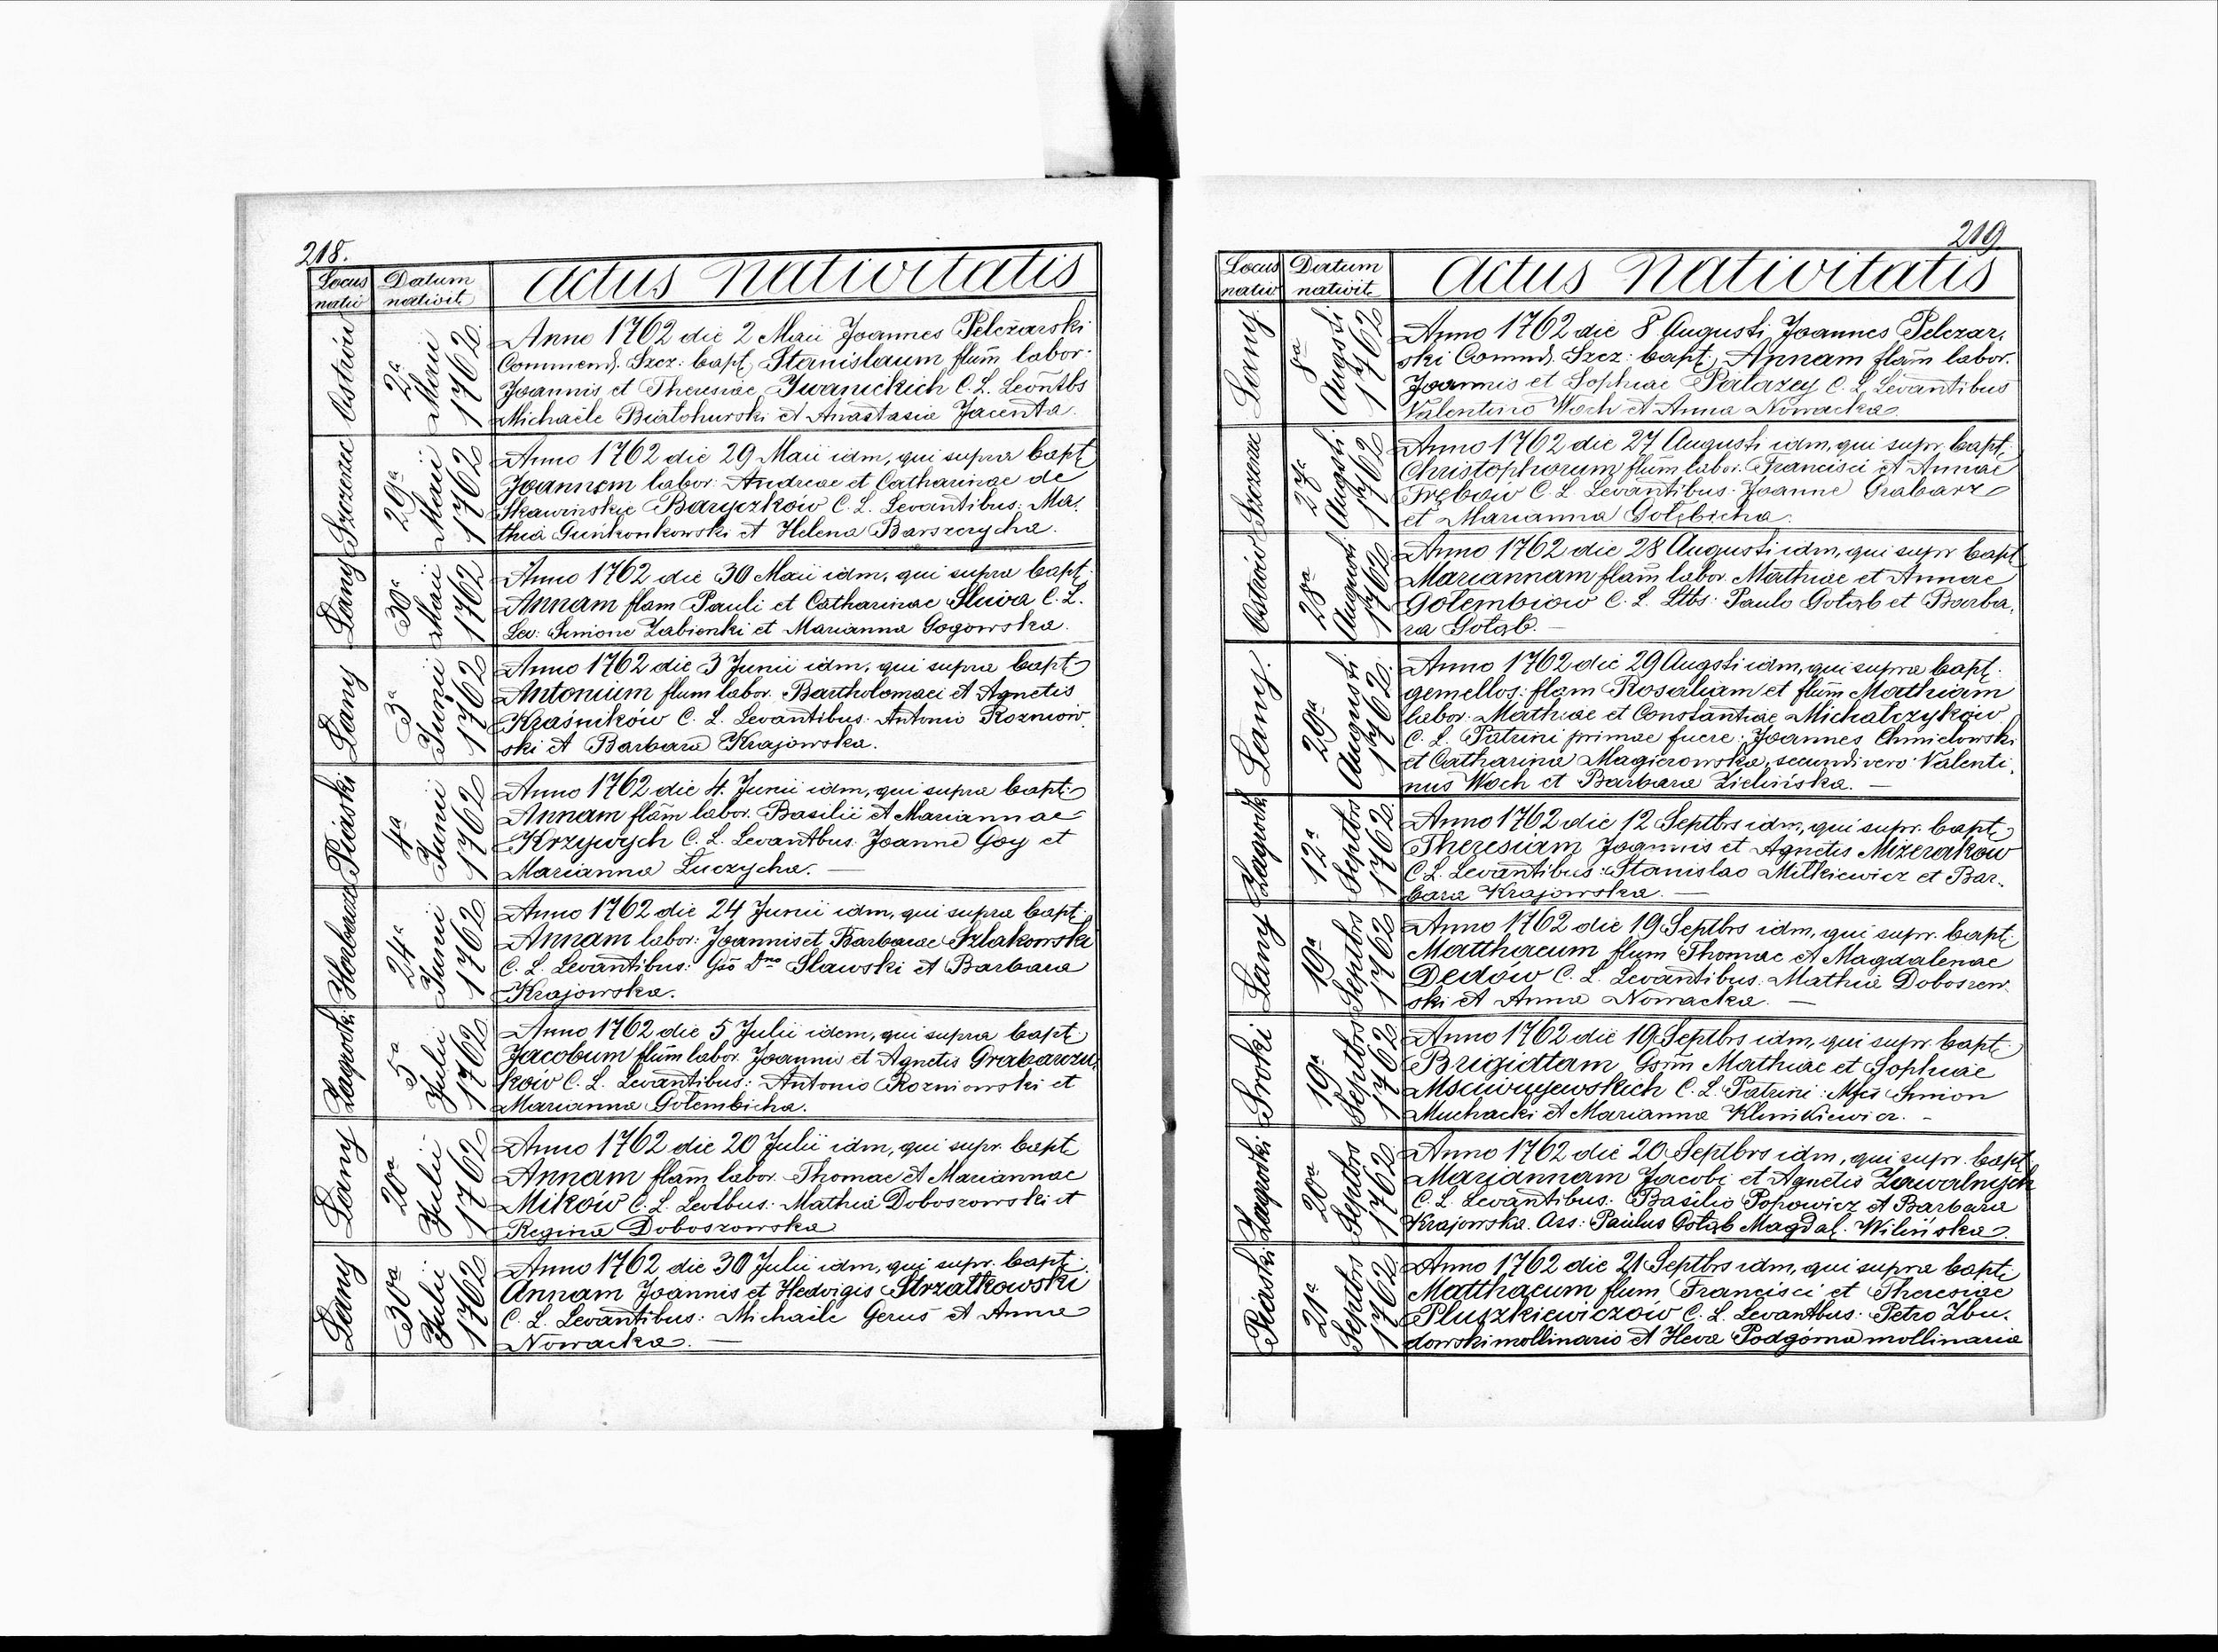 218.
Locus nativ
Datum nativit.
Actus Nativitatis
Ostrów
2a Maii 1762.
Anno 1762 die 2 Maii Joannes Pelczarski
Commend. Szcz: bapt. Stanislaum flum labor.
Joannis et Theresiae Iwanickich C. L. Leöntbs
Michaële Białohurski et Anastasia Jacenta.
Szczerzec
29a Maii 1762
Anno 1762 die 29 Maii idm, qui supra bapt.
Joannem labor: Andreae et Catharinae de
Skawinskie Baryczków C. L. Levantibus: Ma.
thia Gunkonkowski et Helena Barszczycha.
Łany
30a Maii 1762
Anno 1762 die 30 Maii idm, qui supra bapt.
Annam flam Pauli et Catharinae Śliwa C. L.
Lev: Simone Zabienki et Marianna Gogowska.
Łany
3a Junii 1762
Anno 1762 die 3 Junii idm, qui supra bapt.
Antonium flum labor. Bartholomaei et Agnetis
Kraśników C. L. Levantibus: Antonio Rozniow.
ski et Barbara Krajowska.
Piaski
4a Junii 1762
Anno 1762 die 4. Junii idm, qui supra bapt.
Annam flam labor. Basilii et Mariannae
Krzywych C. L. Levantbus. Joanne Goy et
Marianna Łuczycha. —
Horbacze
24a Junii 1762
Anno 1762 die 24 Junii idm, qui supra bapt.
Annam labor: Joannis et Barbarae Szlakowski
C. L. Levantibus: Gso Dno Sławski et Barbara
Krajowska.
Zagrodki
5a Julii 1762
Anno 1762 die 5 Julii idem, qui supra bapt.
Jacobum flum labor. Joannis et Agnetis Grabarzu,
ków C. L. Levantibus: Antonio Rozniowski et
Marianna Gołembicha.
Łany
20a Julii 1762
Anno 1762 die 20 Julii idm, qui supr. bapt.
Annam flam labor. Thomae et Mariannae
Mików C. L. Levtbus: Mathia Doboszowski et
Regina Doboszowska
Łany
30a Julii 1762
Anno 1762 die 30 Julii idm, qui supr. bapt.
Annam Joannis et Hedvigis Strzałkowski
C. L. Levantibus: Michaële Geruś et Anna
Nowacka. —
219.
Locus nativ
Datum nativit.
Actus Nativitatis
Łany
8a Augsti 1762
Anno 1762 die 8 Augusti Joannes Pelczar,
ski Comnd. Szcz: bapt. Annam flam labor.
Joannis et Sophiae Pałazey C. L. Levantibus
Valentino Woch et Anna Nowacka
Szczerzec
27a Augsti 1762
Anno 1762 die 27 Augusti idm, qui supr. bapt.
Christophorum flum labor. Francisci et Annae
Trębów C. L. Levantibus: Joanne Grabarz
et Marianna Gołębicha.
Ostrów
28a Augusti 1762
Anno 1762 die 28 Augusti idm, qui supr bapt
Mariannam flam labor. Mathiae et Annae
Gołembiow C. L. Ltbs: Paulo Gołąb et Barba,
ra Gołąb. —
Łany.
29a Augusti 1762.
Anno 1762 die 29 Augsti idm, qui supra bapt.
gemellos: flam Rosaliam et flum Mathiam
labor. Mathiae et Constantiae Michalczyków
C. L. Patrini primae fuere: Joannes Chmielowski
et Catharina Magierowska, secundi vero Valenti,
nus Woch et Barbara Zielińska. —
Zagrodki
12a Septbrs 1762.
Anno 1762 die 12 Septbrs idm, qui supr. bapt.
Theresiam Joannis et Agnetis Mizeraków
C. L. Levantibus: Stanislao Mitkiewicz et Bar.
bara Krajowska. —
Łany
19a Septbrs 1762
Anno 1762 die 19 Septbrs idm, qui supr. bapt.
Matthaeum flum Thomae et Magdalenae
Dedów C. L. Levantibus. Mathia Doboszow.
ski et Anna Nowacka. —
Sroki
19a Septbrs 1762
Anno 1762 die 19 Septbrs idm, qui supr. bapt.
Brigidtam Gsrm Mathiae et Sophiae
Msciwujewskich C. L. Patrini: Mfcs Simon
Muchacki et Marianna Klimkiewicz. —
Zagrodki
20a Septbrs 1762.
Anno 1762 die 20 Septbrs idm, qui supr. bapt.
Mariannam Jacobi et Agnetis Zawalnych
C. L. Levantibus: Basilio Popowicz et Barbara
Krajowska. Ass: Paulus Gołąb Magdal. Wilińska.
Piaski
21a Septbrs 1762.
Anno 1762 die 21 Septbrs idm, qui supra bapt.
Matthaeum flum Francisci et Theresiae
Pluszkiewiczów C. L. Levantbus: Petro Zbu.
dowski mollinario et Heva Podgórna mollinaria